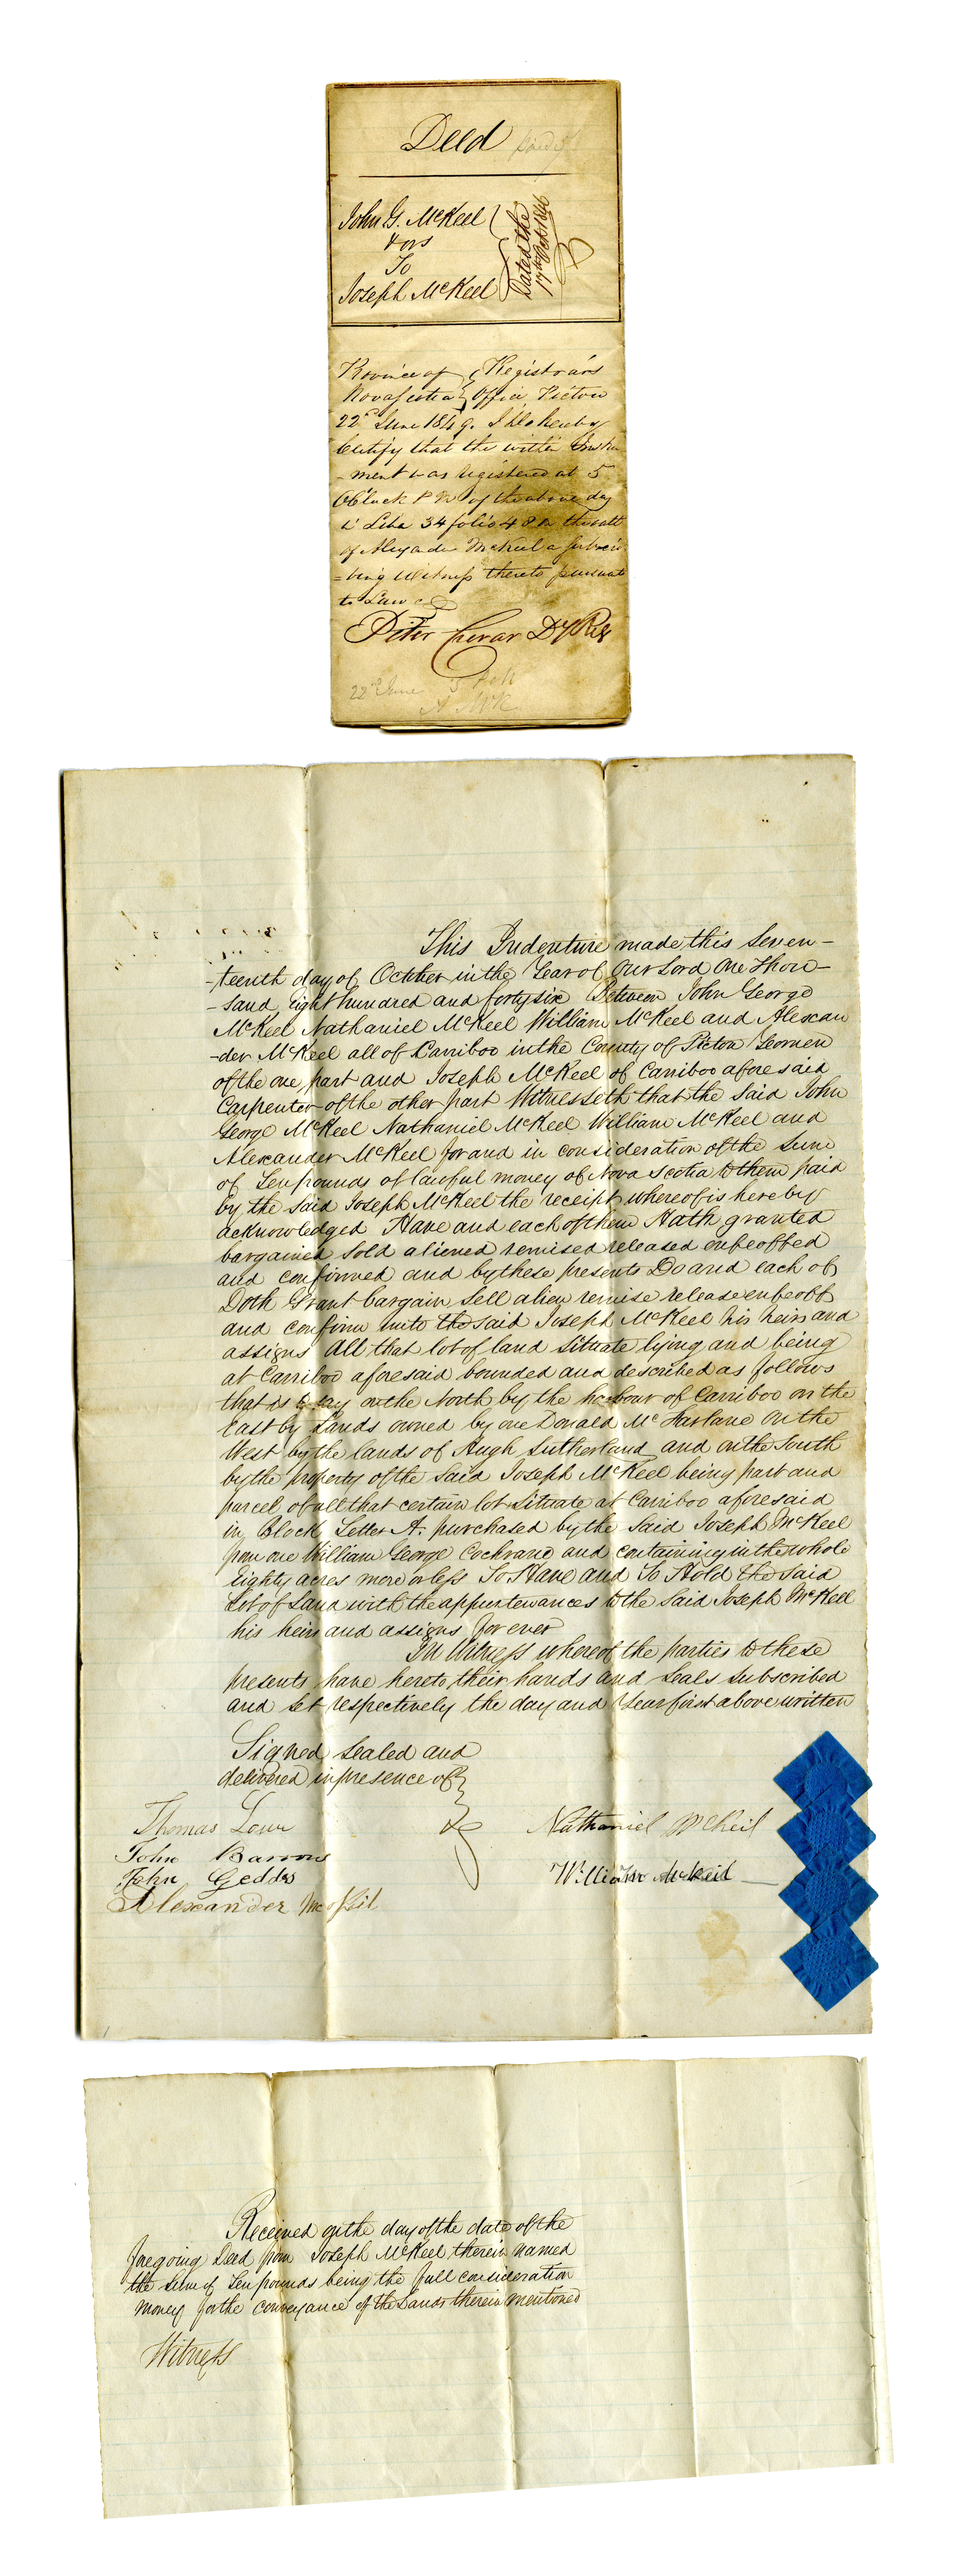 Deed
John G. McKeel
& ors
To
Joseph McKeel
Dated the
17th Oct 1846
Province of } Registrars
Nova Scotia } Office Pictou
22d June 1849. I do hereby
Certify that the within Instru
-ment was registered at 5
OClock P M of the above day
in Libr 34 folio 48 on the oath
of Alexander McKeel a subscri
-bing Witness thereto pursuant
to Law
Peter Crerar Dy Regr
22d June 5
A McK
This Indenture made this Seven-
-teenth day of October in the Year of Our Lord One Thou-
-sand Eight hundred and forty six Between John George
McKeel Nathaniel McKeel William McKeel and Alexan
-der McKeel all of Carriboo in the County of Pictou Yeomen
of the one part and Joseph McKeel of Carriboo aforesaid
Carpenter of the other part Witnesseth that the said John
George McKeel Nathaniel McKeel William McKeel and
Alexander McKeel for and in consideration of the Sum
of Ten pounds of lawful money of Nova Scotia to them paid
by the said Joseph McKeel the receipt whereof is hereby
acknowledged Have and each of them Hath granted
bargained sold aliened remised released enfeoffed
and confirmed and by these presents Do and each of
Doth Grant bargain sell alien remise release enfeoff
and confirm unto the said Joseph McKeel his heirs and
assigns All that lot of land situate lying and being
at Carriboo aforesaid bounded and described as follows
that is to say on the North by the harbour of Carriboo on the
East by Lands owned by one Donald McFarlane on the
West by the lands of Hugh Sutherland and on the South
by the property of the said Joseph McKeel being part and
parcel of all that certain lot situate at Carriboo aforesaid
in Block Letter A. purchased by the said Joseph McKeel
from one William George Cochrane and containing in the whole
Eighty acres more or less To Have and To Hold the said
Lot of Land with the appurtenances to the said Joseph McKeel
his heirs and assigns for ever
In Witness whereof the parties to these
presents have hereto their hands and seals subscribed
and set respectively the day and Year first above written
Signed sealed and
delivered in presence of
Thomas Lowe Nathaniel McKeil
John Barrows
John Geddes William McKeil
Alexander McKil
Received on the day of the date of the
foregoing Deed from Joseph McKeel therein named
the sum of Ten pounds being the full consideration
money for the conveyance of the Lands therein mentioned
Witness